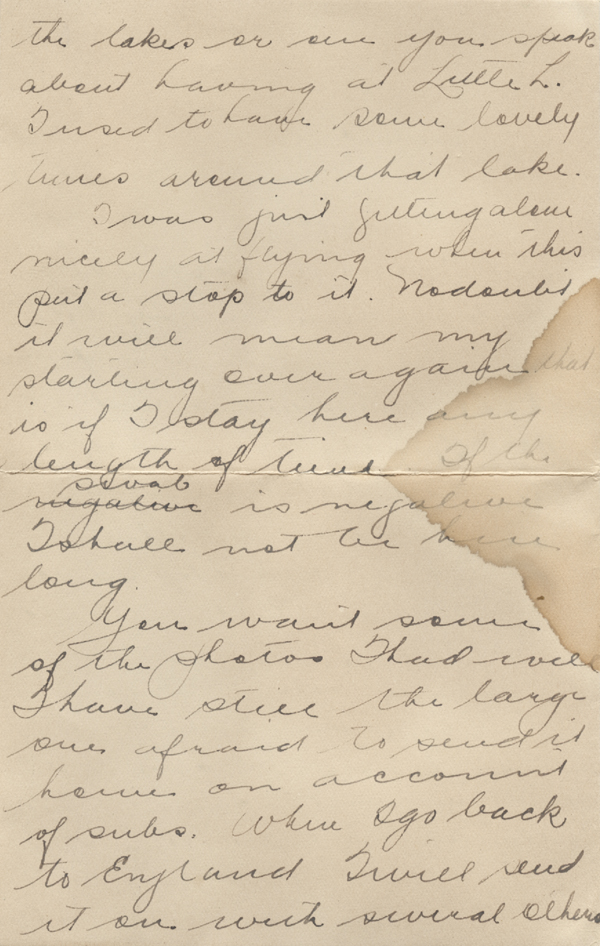 the lakes or one you speak
about having at Little L.
I used to have some lovely
times around that lake.
I was just getting along
nicely at flying when this
put a stop to it. No doubt
it will mean my
starting over again that
is if I stay here any
length of time. If the
swab
negative is negative
I shall not be here
long.
You want some
of the photos I had well
I have still the large
one afraid to send it
home on account
of subs. When I go back
to England I will send
it on with several others